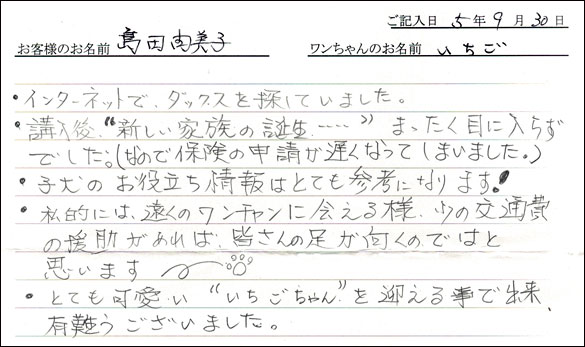 ご記入日 5年 9月 30日
お客様のお名前 島田由美子 ワンちゃんのお名前 いちご
・インターネットで、ダックスを探していました。
・購入後、“新しい家族の誕生……” まったく目に入らず
でした。(なので保険の申請が遅くなってしまいました。)
・子犬のお役立ち情報はとても参考になります!
・私的には、遠くのワンチャンに会える様、少の交通費
の援助があれば、皆さんの足が向くのではと
思います
・とても可愛い “いちごちゃん”を迎える事で出来、
有難うございました。